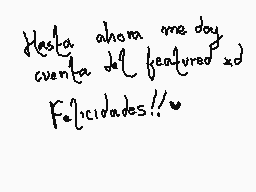 Hasta ahora me doy
cuenta del featured xd
Felicidades!!♥